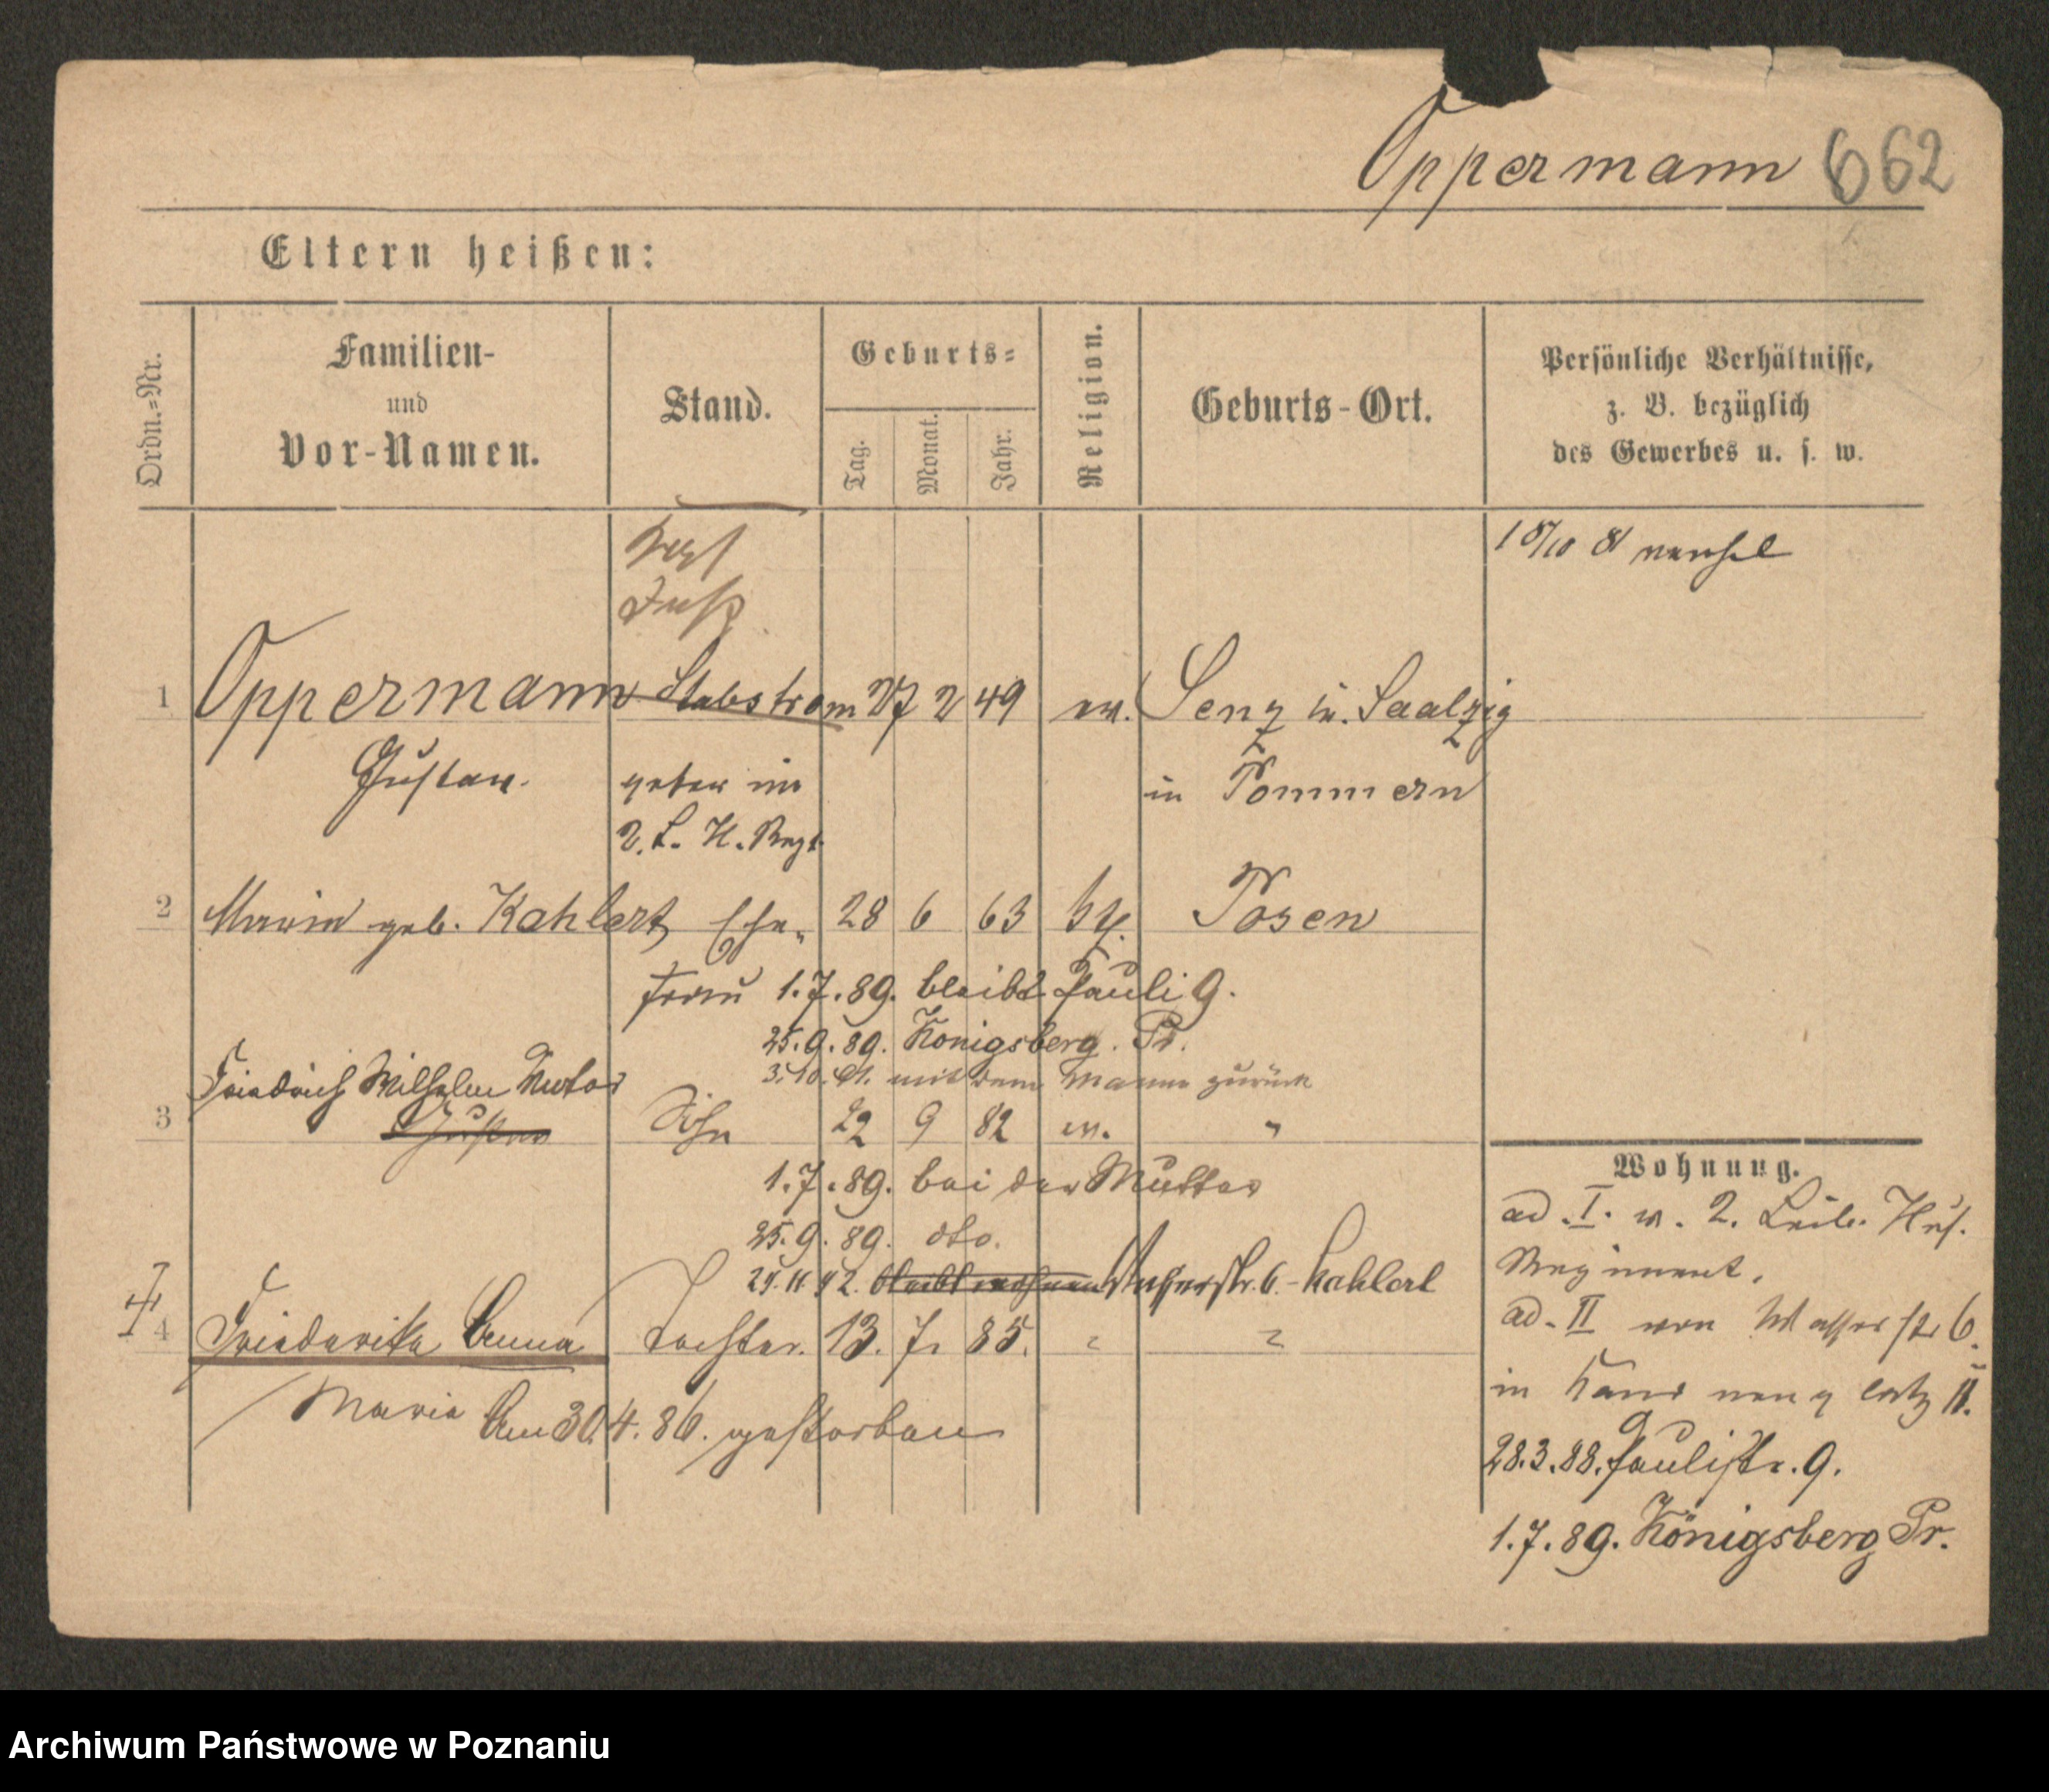 Oppermann 662
Eltern heißen:
Ordn.=Nr.
Familien-
und
Vor-Namen.
Stand.
Geburts=
Tag.
Monat.
Jahr.
Religion.
Geburts-Ort.
Persönliche Verhältnisse,
z. B. bezüglich
des Gewerbes u. s. w.
1 Oppermann Stabstrom 27 2 49 ev. Senz in Saatzig
Gustav. peter im in Pommern
2. L. H. Regt.
2 Maria geb. Kahlert Ehe- 28 6 63 kt. Posen
frau 1.7.89. bleibt Pauli 9.
25.9.89. Königsberg. Pr.
mit dem Manne zurück
Friedrich Wilhelm Victor
3 Gustav Sohn 22 9 82 ev. "
1.7.89. bei der Mutter
25.9.89. dto.
bleibt wohnen 6 - Kahlert
4 Friederike Anna Tochter. 13. 7. 85. " "
Maria Am 30.4.86. gestorben
Wohnung.
ad. I. v. 2. Leib. Hus.
Regiment.
ad. II von Wasserstr 6.
in
28.3.88. Paulistr. 9.
1.7.89. Königsberg Pr.
Archiwum Państwowe w Poznaniu